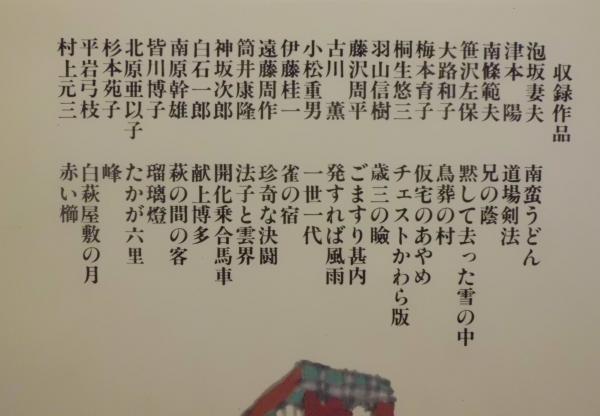 収録作品
泡坂妻夫　南蛮うどん
津本　陽　道場剣法
南條範夫　兄の蔭
笹沢左保　黙して去った雪の中
大路和子　鳥葬の村
梅本育子　仮宅のあやめ
桐生悠三　チェストかわら版
羽山信樹　歳三の瞼
藤沢周平　ごますり甚内
古川　薫　発すれば風雨
小松重男　一世一代
伊藤桂一　雀の宿
遠藤周作　珍奇な決闘
筒井康隆　法子と雲界
神坂次郎　開化乗合馬車
白石一郎　献上博多
南原幹雄　萩の間の客
皆川博子　瑠璃燈
北原亜以子　たかが六里
杉本苑子　峰
平岩弓枝　白萩屋敷の月
村上元三　赤い櫛